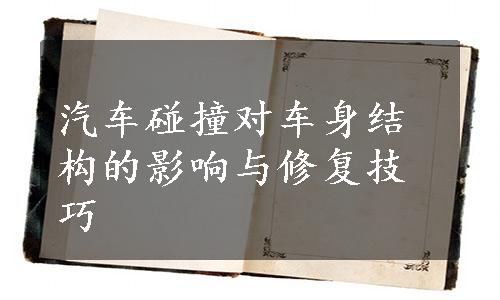 汽车碰撞对车身结
构的影响与修复技
巧